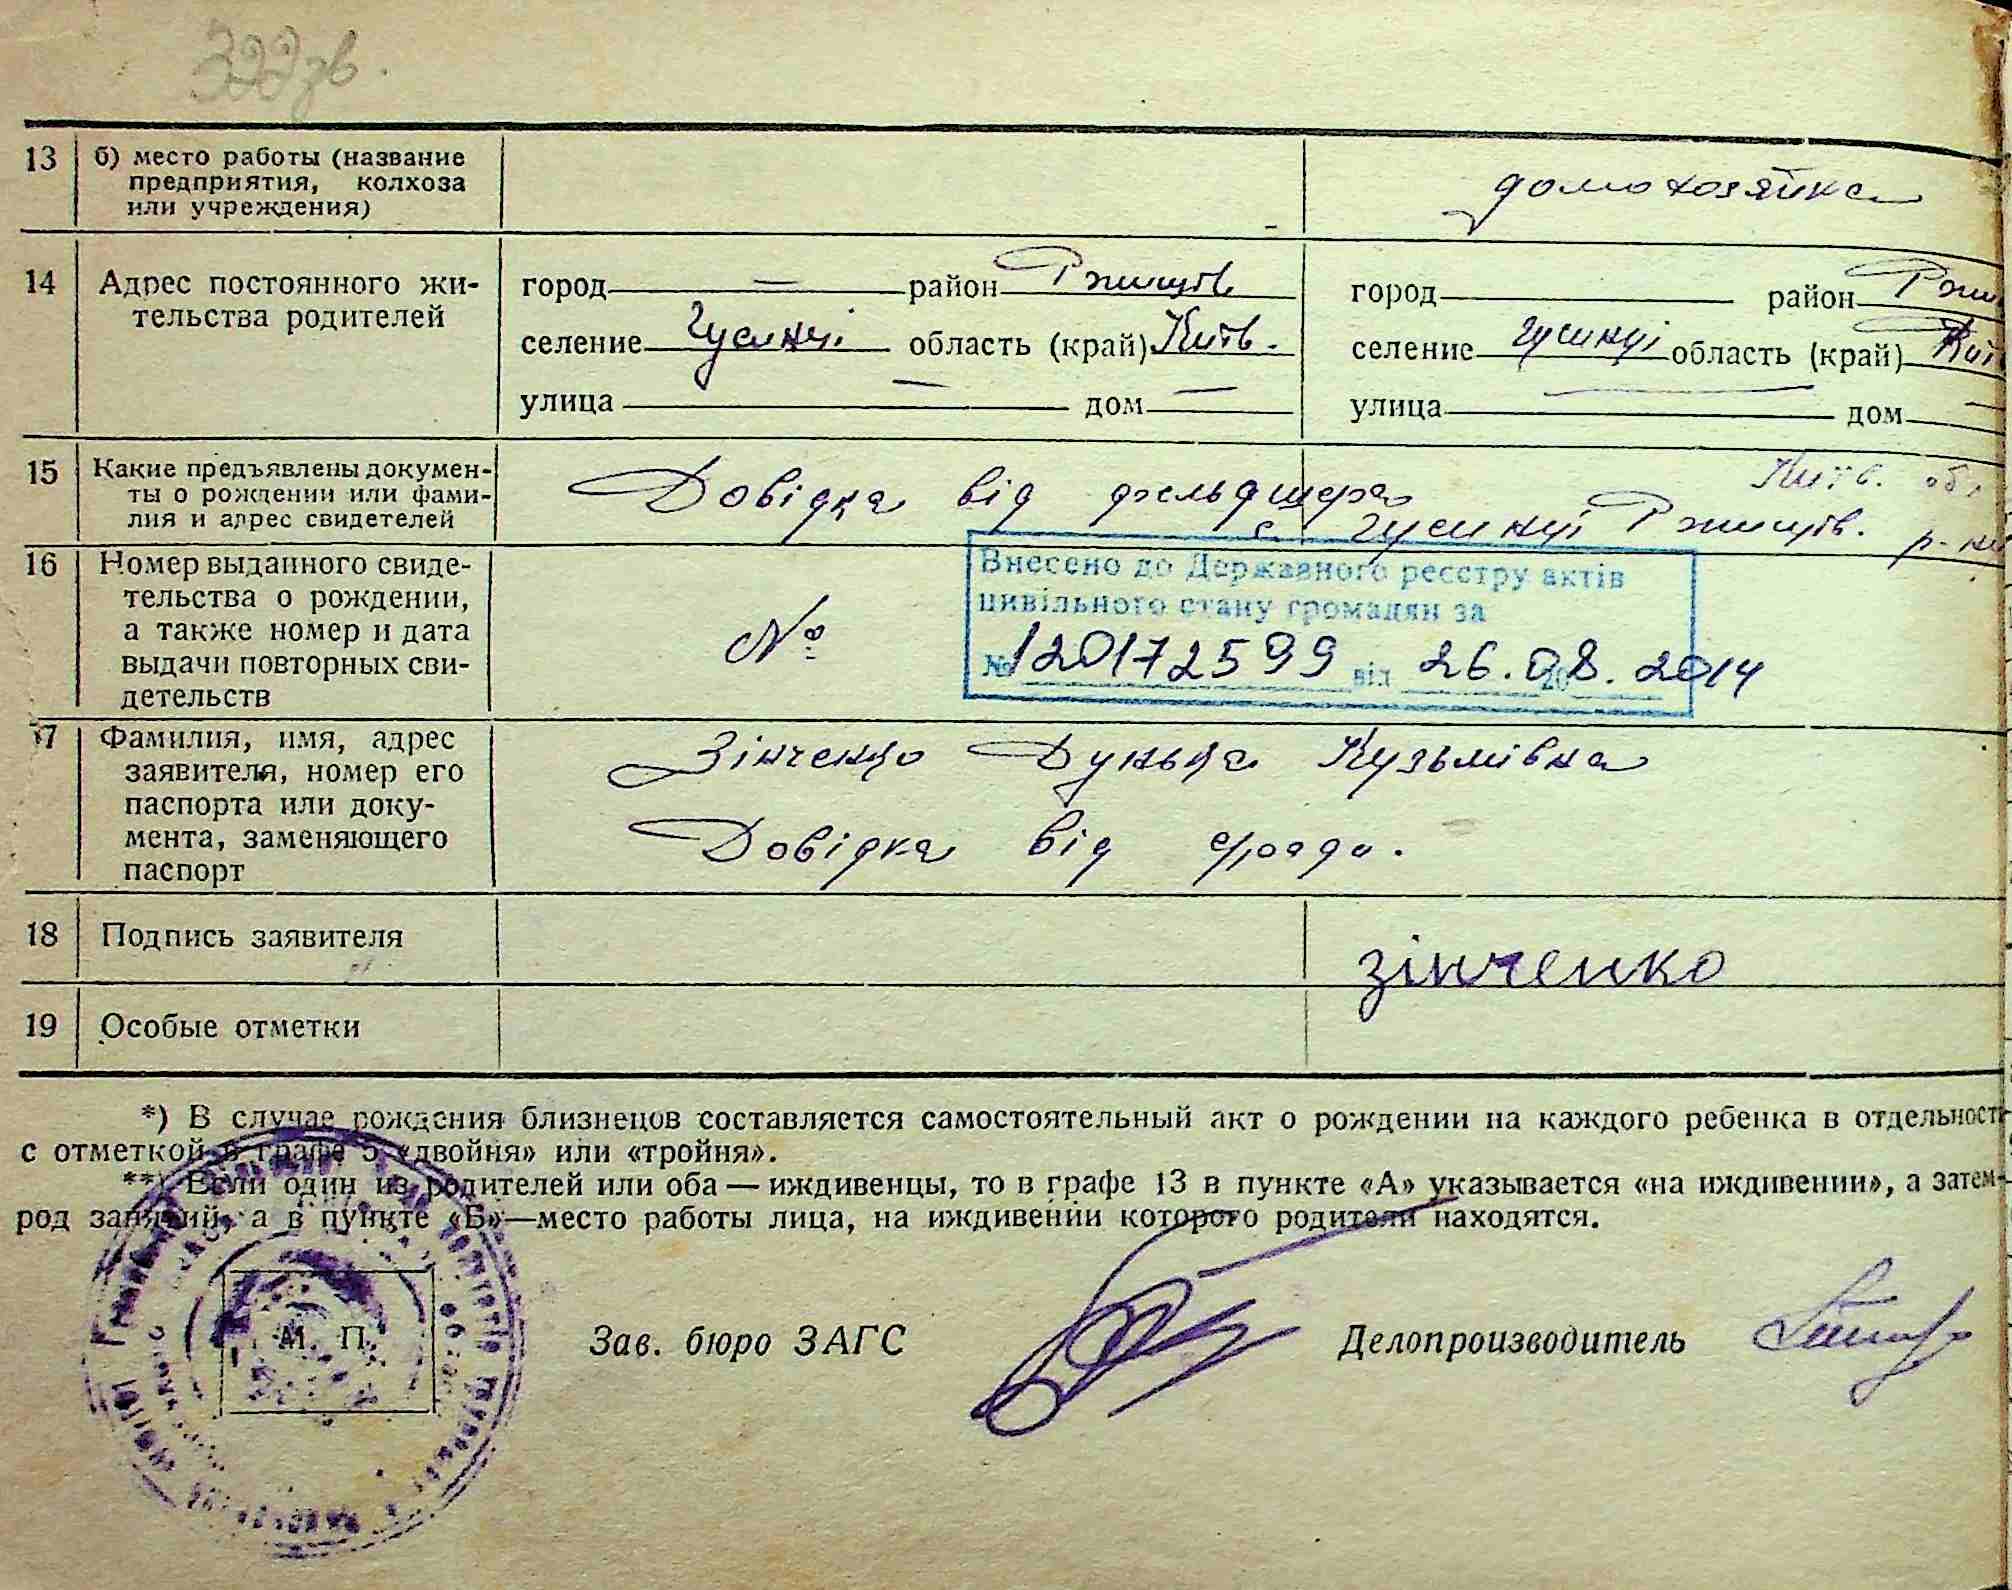 322зв.
13 б) место работы (название
предприятия, колхоза
или учреждения)
домохозяйка
14 Адрес постоянного жи-
тельства родителей
город — район Ржищів
селение Гусинці область (край) Київ.
улица — дом —
город район Ржи
селение Гусинці область (край) Киї
улица — дом —
15 Какие предъявлены докумен-
ты о рождении или фами-
лия и адрес свидетелей
Довідка від фельдшера Київ. обл
с Гусинці Ржищів. р-ну
16 Номер выданного свиде-
тельства о рождении,
а также номер и дата
выдачи повторных сви-
детельств
№
Внесено до Державного реєстру актів
цивільного стану громадян за
№ 120172599 від 26.08.2014
17 Фамилия, имя, адрес
заявителя, номер его
паспорта или доку-
мента, заменяющего
паспорт
Зінченко Дунька Кузьмівна
Довідка від с/ради.
18 Подпись заявителя
зінченко
19 Особые отметки
*) В случае рождения близнецов составляется самостоятельный акт о рождении на каждого ребенка в отдельност
с отметкой в графе 5 «двойня» или «тройня».
**) Если один из родителей или оба — иждивенцы, то в графе 13 в пункте «А» указывается «на иждивении», а затем
род занятий, а в пункте «Б»—место работы лица, на иждивении которого родители находятся.
М. П.
Зав. бюро ЗАГС
Делопроизводитель